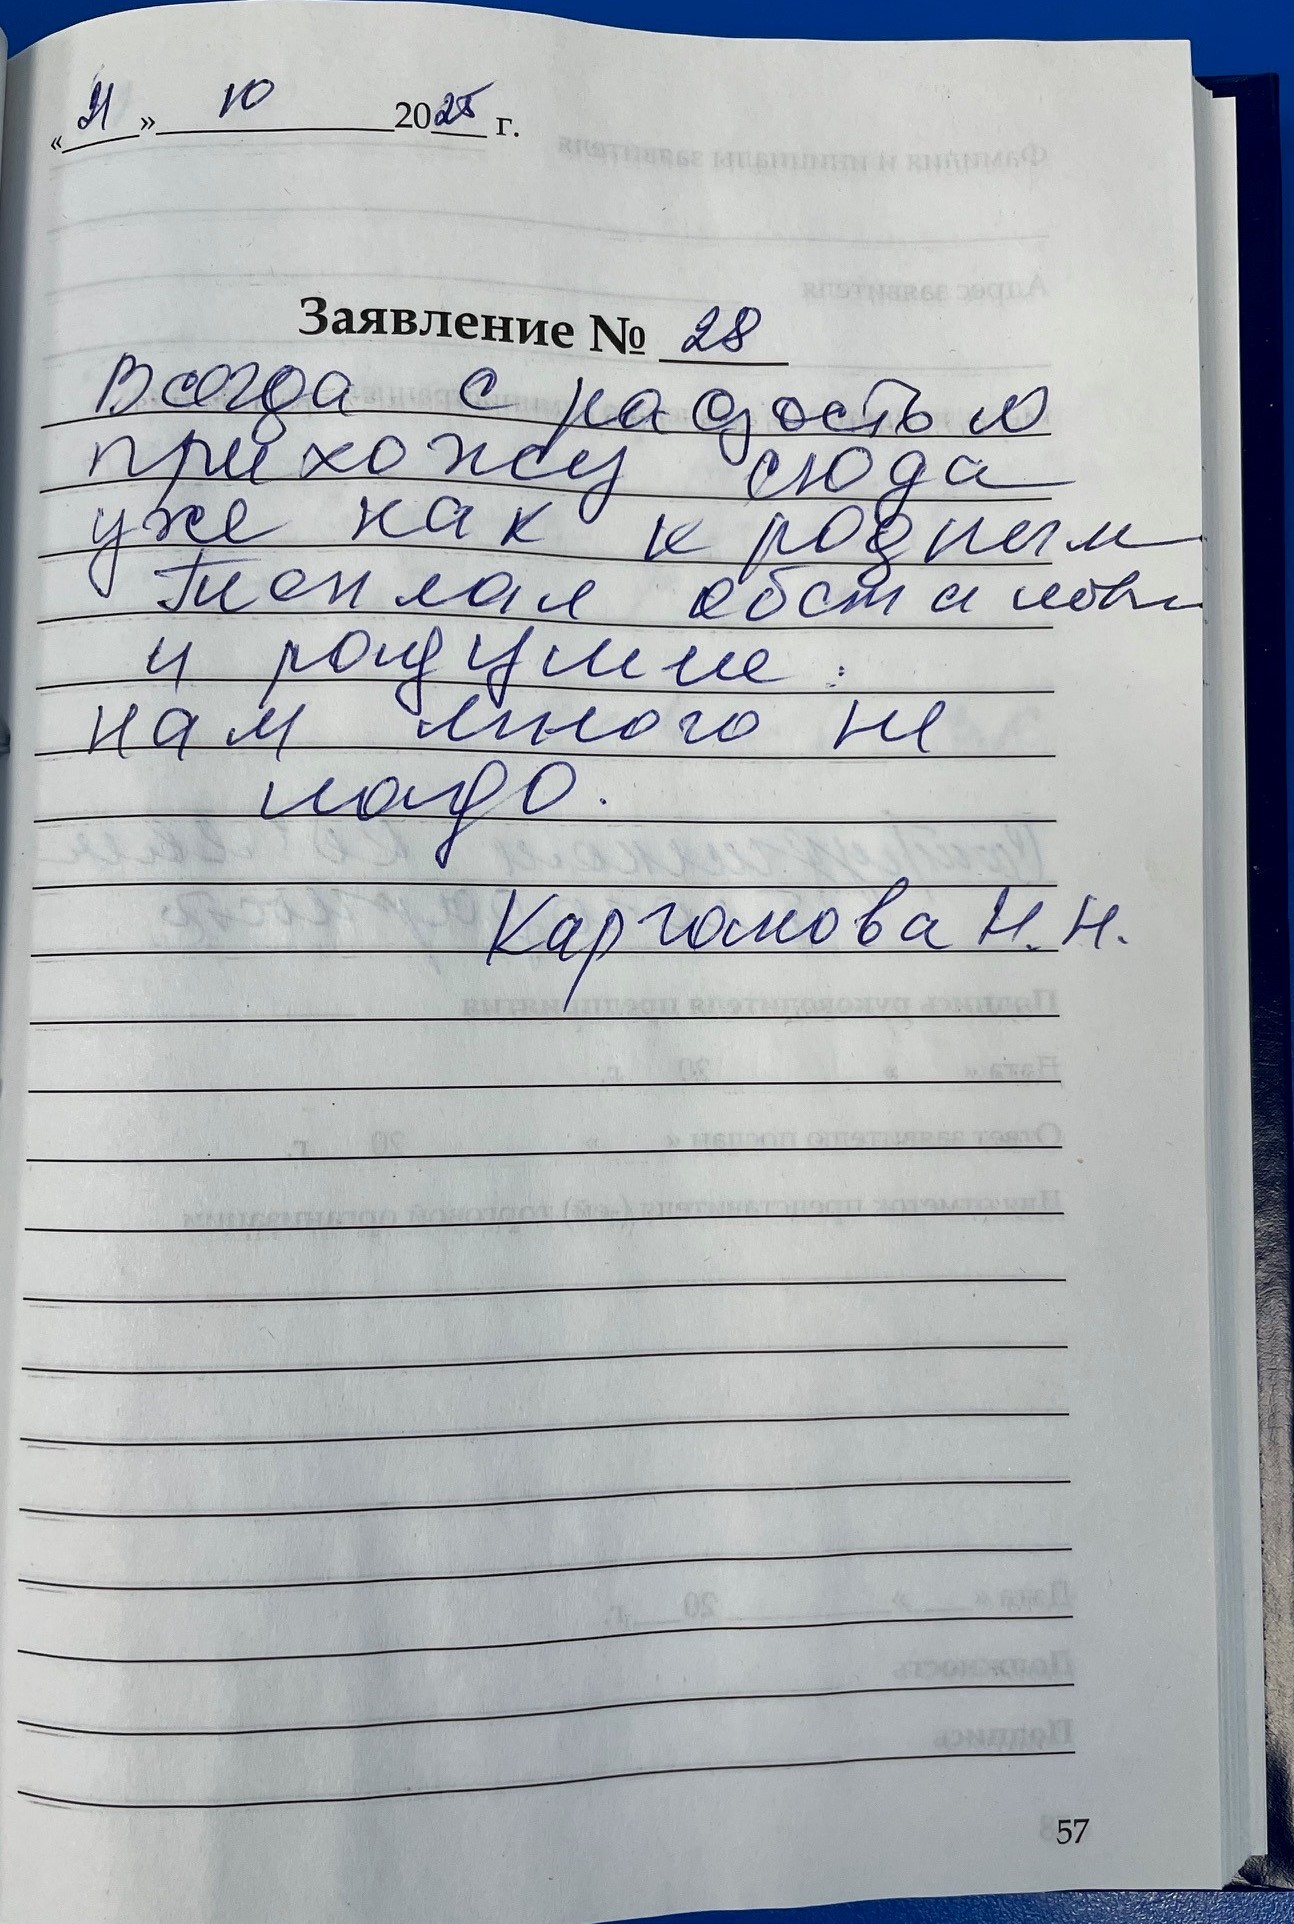 «21» 10 2025 г.
Заявление № 28
Всегда с радостью
прихожу сюда
уже как к родным
Теплая обстановка
и радушие.
нам много не
надо.
Каргомова Н.Н.
57